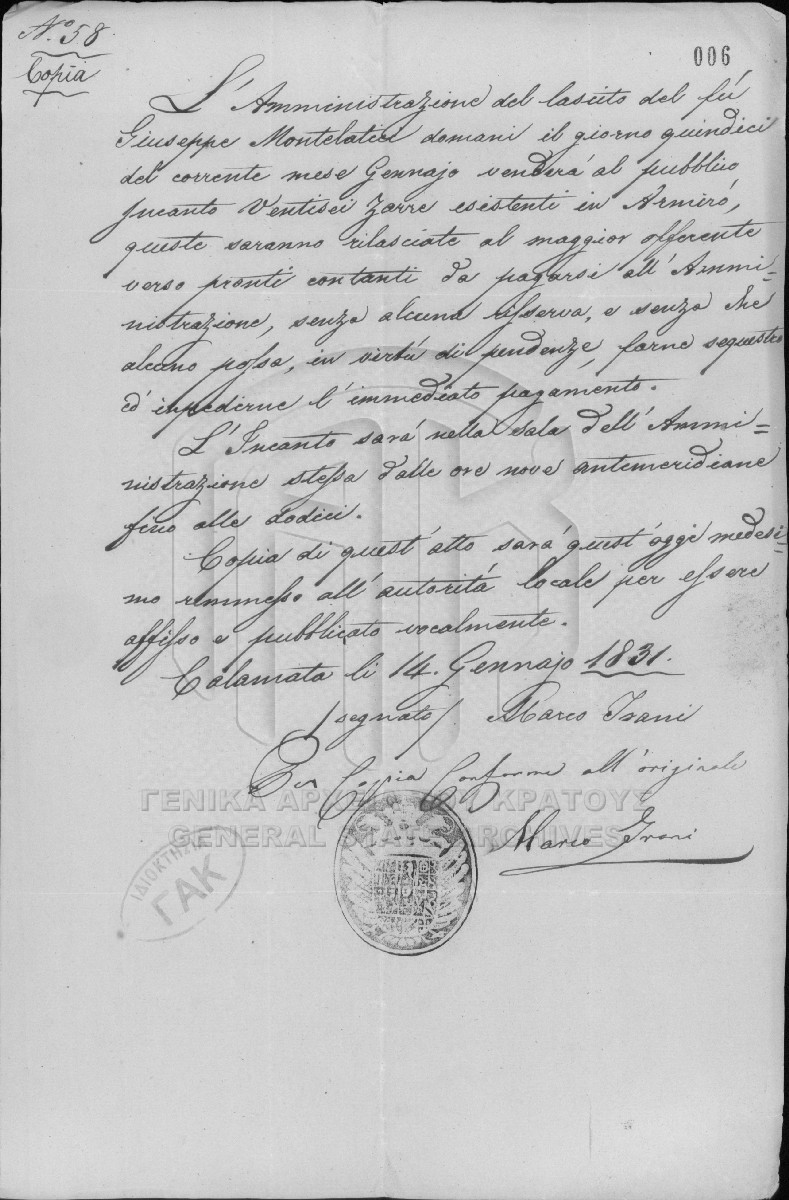 N.º 58.
Copia
006
L'Amministrazione del lascito del fù
Giuseppe Montelatici domani il giorno quindici
del corrente mese Gennajo venderá al pubblico
Incanto Ventisei Zarre esistenti in Armiró,
queste saranno rilasciate al maggior offerente
verso pronti contanti da pagarsi all'Ammi=
nistrazione, senza alcuna risserva, e senza che
alcuno possa, in virtú di pendenze, farne sequestro
ed impedirne l'immediato pagamento.
L'Incanto sará nella sala dell'Ammi=
nistrazione stessa dalle ore nove antemeridiane
fino alle dodici.
Copia di quest'atto sará quest'oggi medesi=
mo rimmesso all'autoritá locale per essere
affisso e pubblicato vocalmente.
Calamata li 14. Gennajo 1831.
/segnato/ Marco
Per Copia Conforme all'originale
Marco
ΓΕΝΙΚΑ ΑΡΧΕΙΑ ΤΟΥ ΚΡΑΤΟΥΣ
GENERAL STATE ARCHIVES
ΓΑΚ